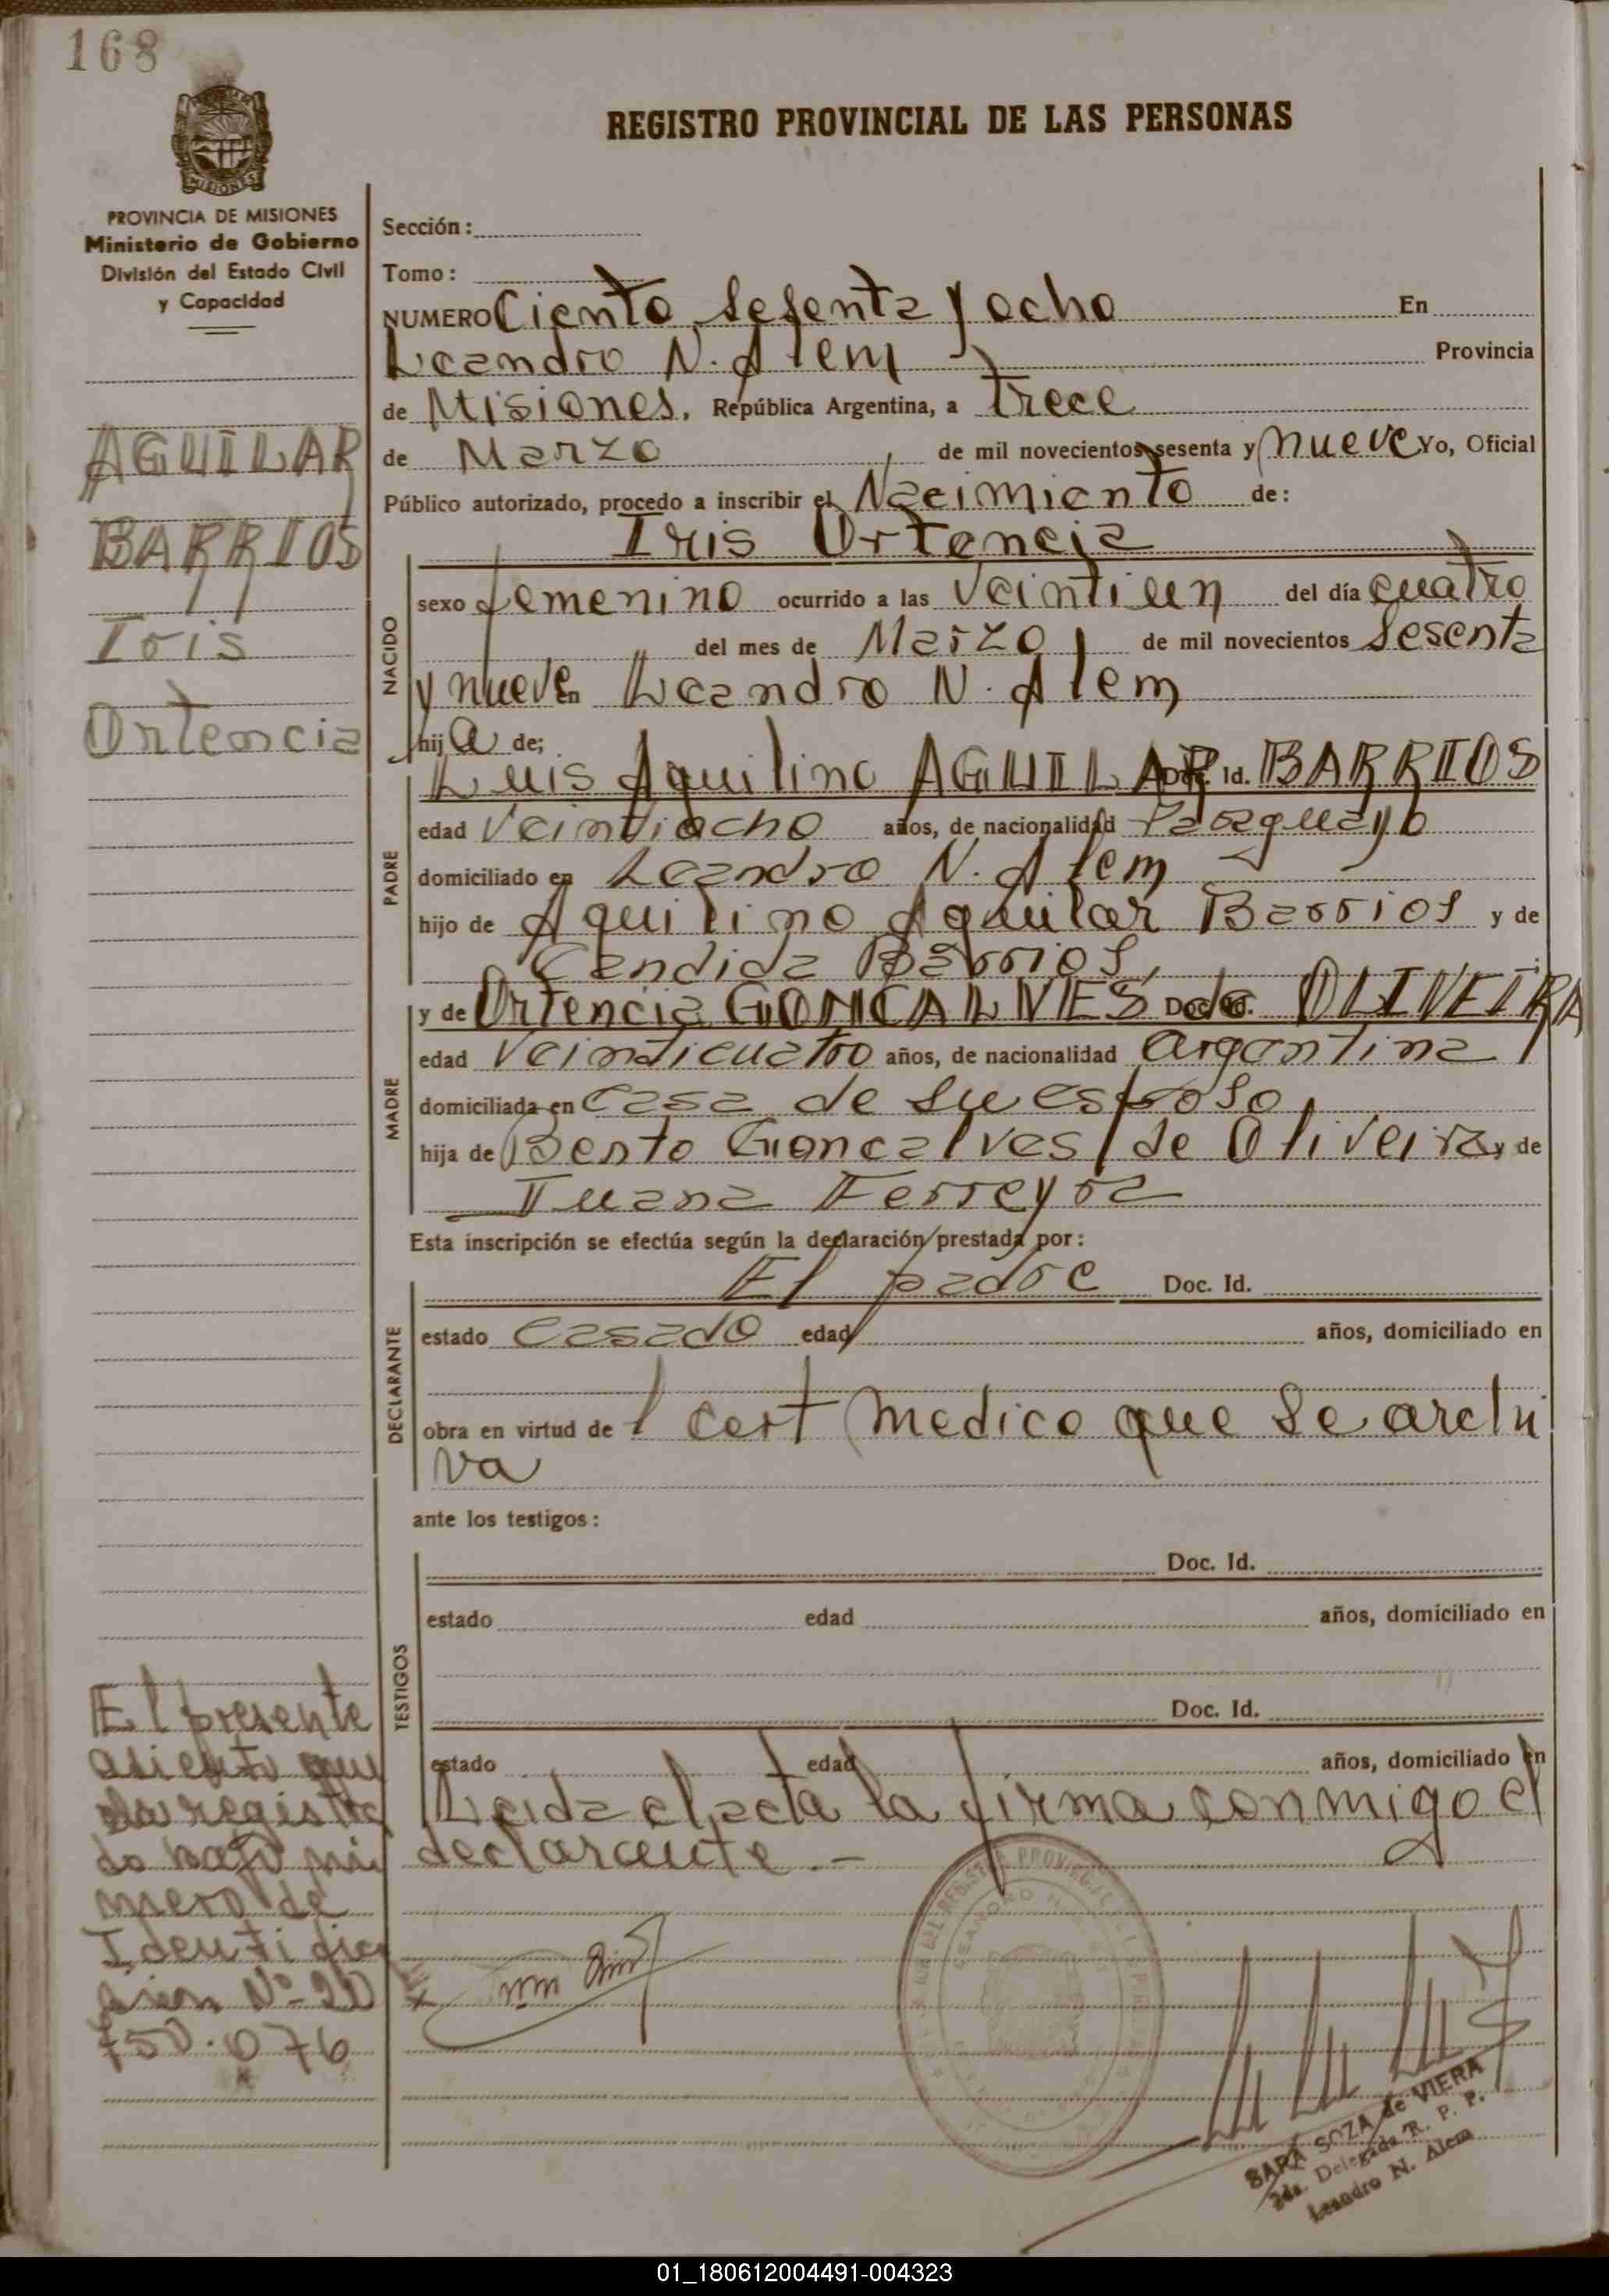 168
REGISTRO PROVINCIAL DE LAS PERSONAS
MISIONES
PROVINCIA DE MISIONES
Ministerio de Gobierno
División del Estado Civil
y Capacidad
AGUILAR
BARRIOS
Iris
Ortencia
Sección:
Tomo:
NUMERO Ciento sesenta y ocho En
Leandro N. Alem Provincia
de Misiones, República Argentina, a trece
de Marzo de mil novecientos sesenta y nueve Yo, Oficial
Público autorizado, procedo a inscribir el Nacimiento de:
Iris Ortencia
NACIDO
sexo femenino ocurrido a las veintiun del día cuatro
del mes de Marzo de mil novecientos sesenta
y nueve en Leandro N. Alem
hija de;
PADRE
Luis Aquilino AGUILAR Doc. Id. BARRIOS
edad veintiocho años, de nacionalidad Paraguayo
domiciliado en Leandro N. Alem
hijo de Aquilino Aguilar Barrios y de
Candida Barrios,
MADRE
y de Ortencia GONCALVES Doc. de OLIVEIRA
edad veinticuatro años, de nacionalidad argentina
domiciliada en casa de su esposo
hija de Bento Goncalves de Oliveira y de
Juana Ferreyra
Esta inscripción se efectúa según la declaración prestada por:
DECLARANTE
El padre Doc. Id.
estado casado edad años, domiciliado en
obra en virtud de l cert medico que se archi
va
ante los testigos:
TESTIGOS
Doc. Id.
estado edad años, domiciliado en
Doc. Id.
estado edad años, domiciliado en
Leida el acta la firma conmigo el
declarante.-
El presente
asiento que
da registra
do bajo nú
mero de
Identifica
cion Nº 20
750.076
SARA SOZA de VIERA
2da. Delegada R. P. P.
Leandro N. Alem
01_180612004491-004323